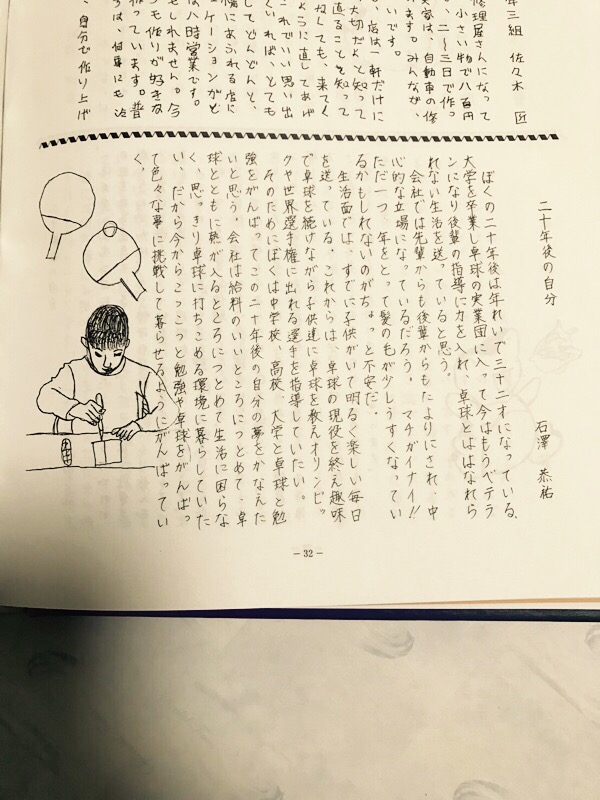 年三組 佐々木 匠
修理屋さんになって
小さい物で八百円
、二〜三日で作っ
実家は、自動車の修
ます。みんなが、
いです。
、店は、一軒だけに
大切だよと知って
直ることを知って
なくても、来てく
ように直してあげ
これでいい思い出
くいれば、とても
してどんどんと、
舗にあふれる店に
ケーションがど
は八時営業です。
もしれません。今
つも作りが好きな
作っています。普
は、何事にも
、自分で作り上げ
二十年後の自分
石澤 恭祐
ぼくの二十年後は年れいで三十二才になっている、
大学を卒業し卓球の実業団に入って今はもうベテラ
ンになり後輩の指導に力を入れ、卓球とははなれら
れない生活を送っていると思う。
会社では先輩からも後輩からもたよりにされ、中
心的な立場になっているだろう。マチガイナイ!!
ただ一つ、年をとって髪のもが少しうすくなってい
るかもしれないのがちょっと不安だ。
生活面では、すでに子供がいて明るく楽しい毎日
を送っている。これからは、卓球の現役を終え趣味
で卓球を続けながら子供達に卓球を教えオリンピッ
クや世界選手権に出れる選手を指導していたい。
そのためにぼくは中学校、高校、大学と卓球と勉
強をがんばってこの二十年後の自分の夢をかなえた
いと思う。会社は給料のいいところにつとめて、卓
球とともに熱が入るところにつとめて生活に困らな
く、思っきり卓球に打ちこめる環境に暮らしていた
い、だから今からこつこつと勉強や卓球をがんばっ
て色々な事に挑戦して暮らせるようにがんばってい
く。
－32－